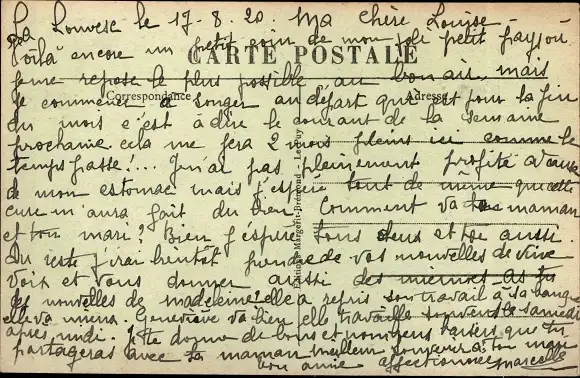 La Louvesc le 17-8-20. Ma chère Louise
Voilà encore un petit coin de mon joli petit pays où
CARTE POSTALE
je me repose le plus possible au bon air, mais
Correspondance
Adresse
je commence à songer au départ qui est pour la fin
du mois c'est à dire le courant de la semaine
prochaine cela me fera 2 mois pleins ici comme le
temps passe!... Je n'ai pas pleinement profité à cause
de mon estomac mais j'espère tout de même que cette
cure m'aura fait du bien. Comment va ta maman
et ton mari? Bien j'espère tous deux et toi aussi.
Du reste j'irai bientôt prendre de vos nouvelles de vive
voix et vous donner aussi des miennes. As tu
des nouvelles de madeleine? elle a repris son travail à sa banque
elle va mieux. Geneviève va bien elle travaille souvent le samedi
après midi. Je te donne de bons et nombreux baisers que tu
partageras avec ta maman meilleur souvenir à ton mari
ton amie affectionnée Marcelle
Editions Margerit-Brémond - Le Puy